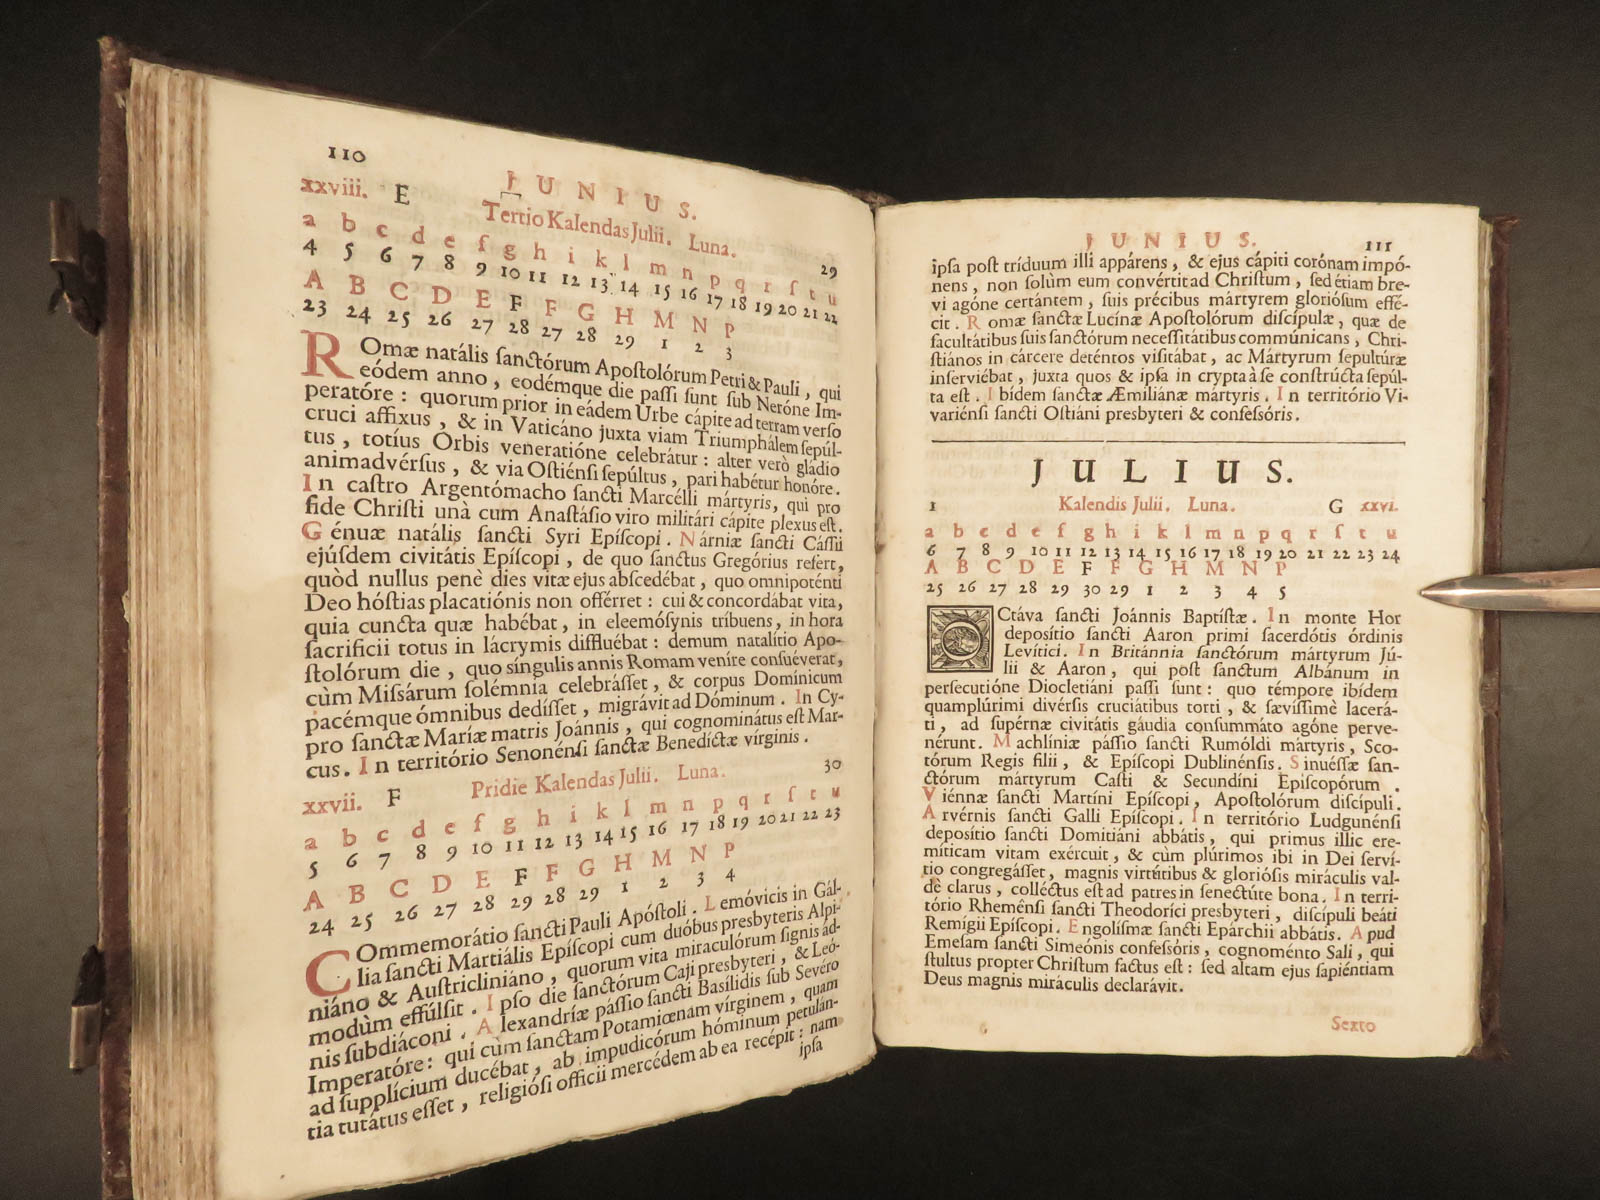 110
JUNIUS.
xxviii. E Tertio Kalendas Julii. Luna. 29
a b c d e f g h i k l m n p q r ſ t u
4 5 6 7 8 9 10 11 12 13 14 15 16 17 18 19 20 21 22
A B C D E F F G H M N P
23 24 25 26 27 28 27 28 29 1 2 3
ROmæ natális ſanctórum Apoſtolórum Petri & Pauli, qui
eódem anno, eodémque die paſſi ſunt ſub Neróne Im-
peratóre: quorum prior in eádem Urbe cápite ad terram verſo
cruci affixus, & in Vaticáno juxta viam Triumphálem ſepúl-
tus, totíus Orbis veneratióne celebrátur: alter verò gládio
animadvérſus, & via Oſtiénſi ſepúltus, pari habétur honóre.
In caſtro Argentómacho ſancti Marcélli mártyris, qui pro
fide Chriſti unà cum Anaſtáſio viro militári cápite plexus eſt.
Génuæ natális ſancti Syri Epíſcopi. Nárniæ ſancti Cáſſii
ejúſdem civitátis Epíſcopi, de quo ſanctus Gregórius refert,
quòd nullus penè dies vitæ ejus abſcedébat, quo omnipoténti
Deo hóſtias placatiónis non offérret: cui & concordábat vita,
quia cuncta quæ habébat, in eleemóſynis tríbuens, in hora
ſacrifícii totus in lácrymis diffluébat: demum natalítio Apo-
ſtolórum die, quo síngulis annis Romam veníre conſuéverat,
cùm Miſſárum ſolémnia celebráſſet, & corpus Domínicum
pacémque ómnibus dedíſſet, migrávit ad Dóminum. In Cy-
pro ſanctæ Maríæ matris Joánnis, qui cognominátus eſt Mar-
cus. In território Senonénſi ſanctæ Benedíctæ vírginis.
xxvii. F Pridie Kalendas Julii. Luna. 30
a b c d e f g h i k l m n p q r ſ t u
5 6 7 8 9 10 11 12 13 14 15 16 17 18 19 20 21 22 23
A B C D E F F G H M N P
24 25 26 27 28 29 28 29 1 2 3 4
COmmemorátio ſancti Pauli Apóſtoli. Lemóvicis in Gál-
lia ſancti Martiális Epíſcopi cum duóbus presbyteris Alpi-
niáno & Auſtricliniáno, quorum vita miraculórum ſignis ád-
modùm effúlſit. Ipſo die ſanctórum Caji presbyteri, & Leó-
nis ſubdiáconi. Alexandríæ páſſio ſancti Basílidis ſub Sevéro
Imperatóre: qui cùm ſanctam Potamiœnam vírginem, quam
ad ſupplícium ducébat, ab impudicórum hóminum petulán-
tia tutátus eſſet, religióſi officii mercédem ab ea recépit: nam
ipſa
JUNIUS. 111
ipſa poſt tríduum illi appárens, & ejus cápiti corónam impó-
nens, non ſolùm eum convértit ad Chriſtum, ſed étiam bre-
vi agóne certántem, ſuis précibus mártyrem glorióſum effé-
cit. Romæ ſanctæ Lucínæ Apoſtolórum diſcípulæ, quæ de
facultátibus ſuis ſanctórum neceſſitátibus commúnicans, Chri-
ſtiános in cárcere deténtos viſitábat, ac Mártyrum ſepultúræ
inſerviébat, juxta quos & ipſa in crypta à ſe conſtrúcta ſepúl-
ta eſt. Ibídem ſanctæ Æmiliánæ mártyris. In território Vi-
variénſi ſancti Oſtiáni presbyteri & confeſsóris.
JULIUS.
1 Kalendis Julii. Luna. G xxvi.
a b c d e f g h i k l m n p q r ſ t u
6 7 8 9 10 11 12 13 14 15 16 17 18 19 20 21 22 23 24
A B C D E F F G H M N P
25 26 27 28 29 30 29 1 2 3 4 5
OCtáva ſancti Joánnis Baptíſtæ. In monte Hor
depoſítio ſancti Aaron primi ſacerdótis órdinis
Levítici. In Británnia ſanctórum mártyrum Jú-
lii & Aaron, qui poſt ſanctum Albánum in
perſecutióne Diocletiáni paſſi ſunt: quo témpore ibídem
quamplúrimi divérſis cruciátibus torti, & ſævíſſimè lacerá-
ti, ad ſupérnæ civitátis gáudia conſummáto agóne perve-
nérunt. Machlíniæ páſſio ſancti Rumóldi mártyris, Sco-
tórum Regis fílii, & Epíſcopi Dublinénſis. Sinuéſſæ ſan-
ctórum mártyrum Caſti & Secundíni Epiſcopórum.
Viénnæ ſancti Martíni Epíſcopi, Apoſtolórum diſcípuli.
Arvérnis ſancti Galli Epíſcopi. In território Ludgunénſi
depoſítio ſancti Domitiáni abbátis, qui primus illic ere-
míticam vitam exércuit, & cùm plúrimos ibi in Dei ſerví-
tio congregáſſet, magnis virtútibus & glorióſis miráculis val-
dè clarus, colléctus eſt ad patres in ſenectúte bona. In terri-
tório Rheménſi ſancti Theodoríci presbyteri, diſcípuli beáti
Remígii Epíſcopi. Engoliſmæ ſancti Epárchii abbátis. Apud
Emeſam ſancti Simeónis confeſsóris, cognoménto Sali, qui
ſtultus propter Chriſtum factus eſt: ſed altam ejus ſapiéntiam
Deus magnis miráculis declarávit.
Sexto